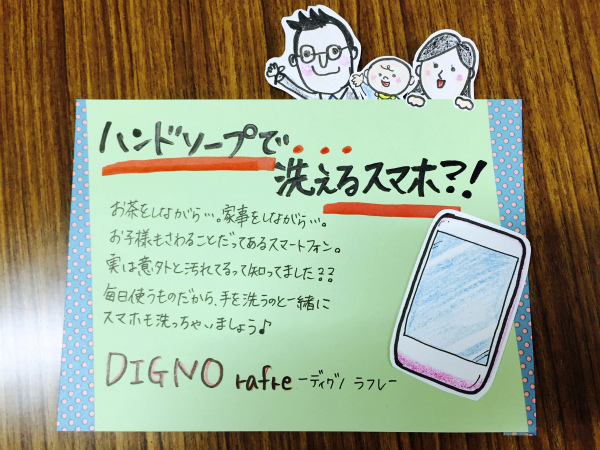 ハンドソープで...
洗えるスマホ?!
お茶をしながら…。家事をしながら…。
お子様もさわることだってあるスマートフォン。
実は意外と汚れてるって知ってました??
毎日使うものだから、手を洗うのと一緒に
スマホも洗っちゃいましょう♪
DIGNO rafre ーディグノ ラフレー